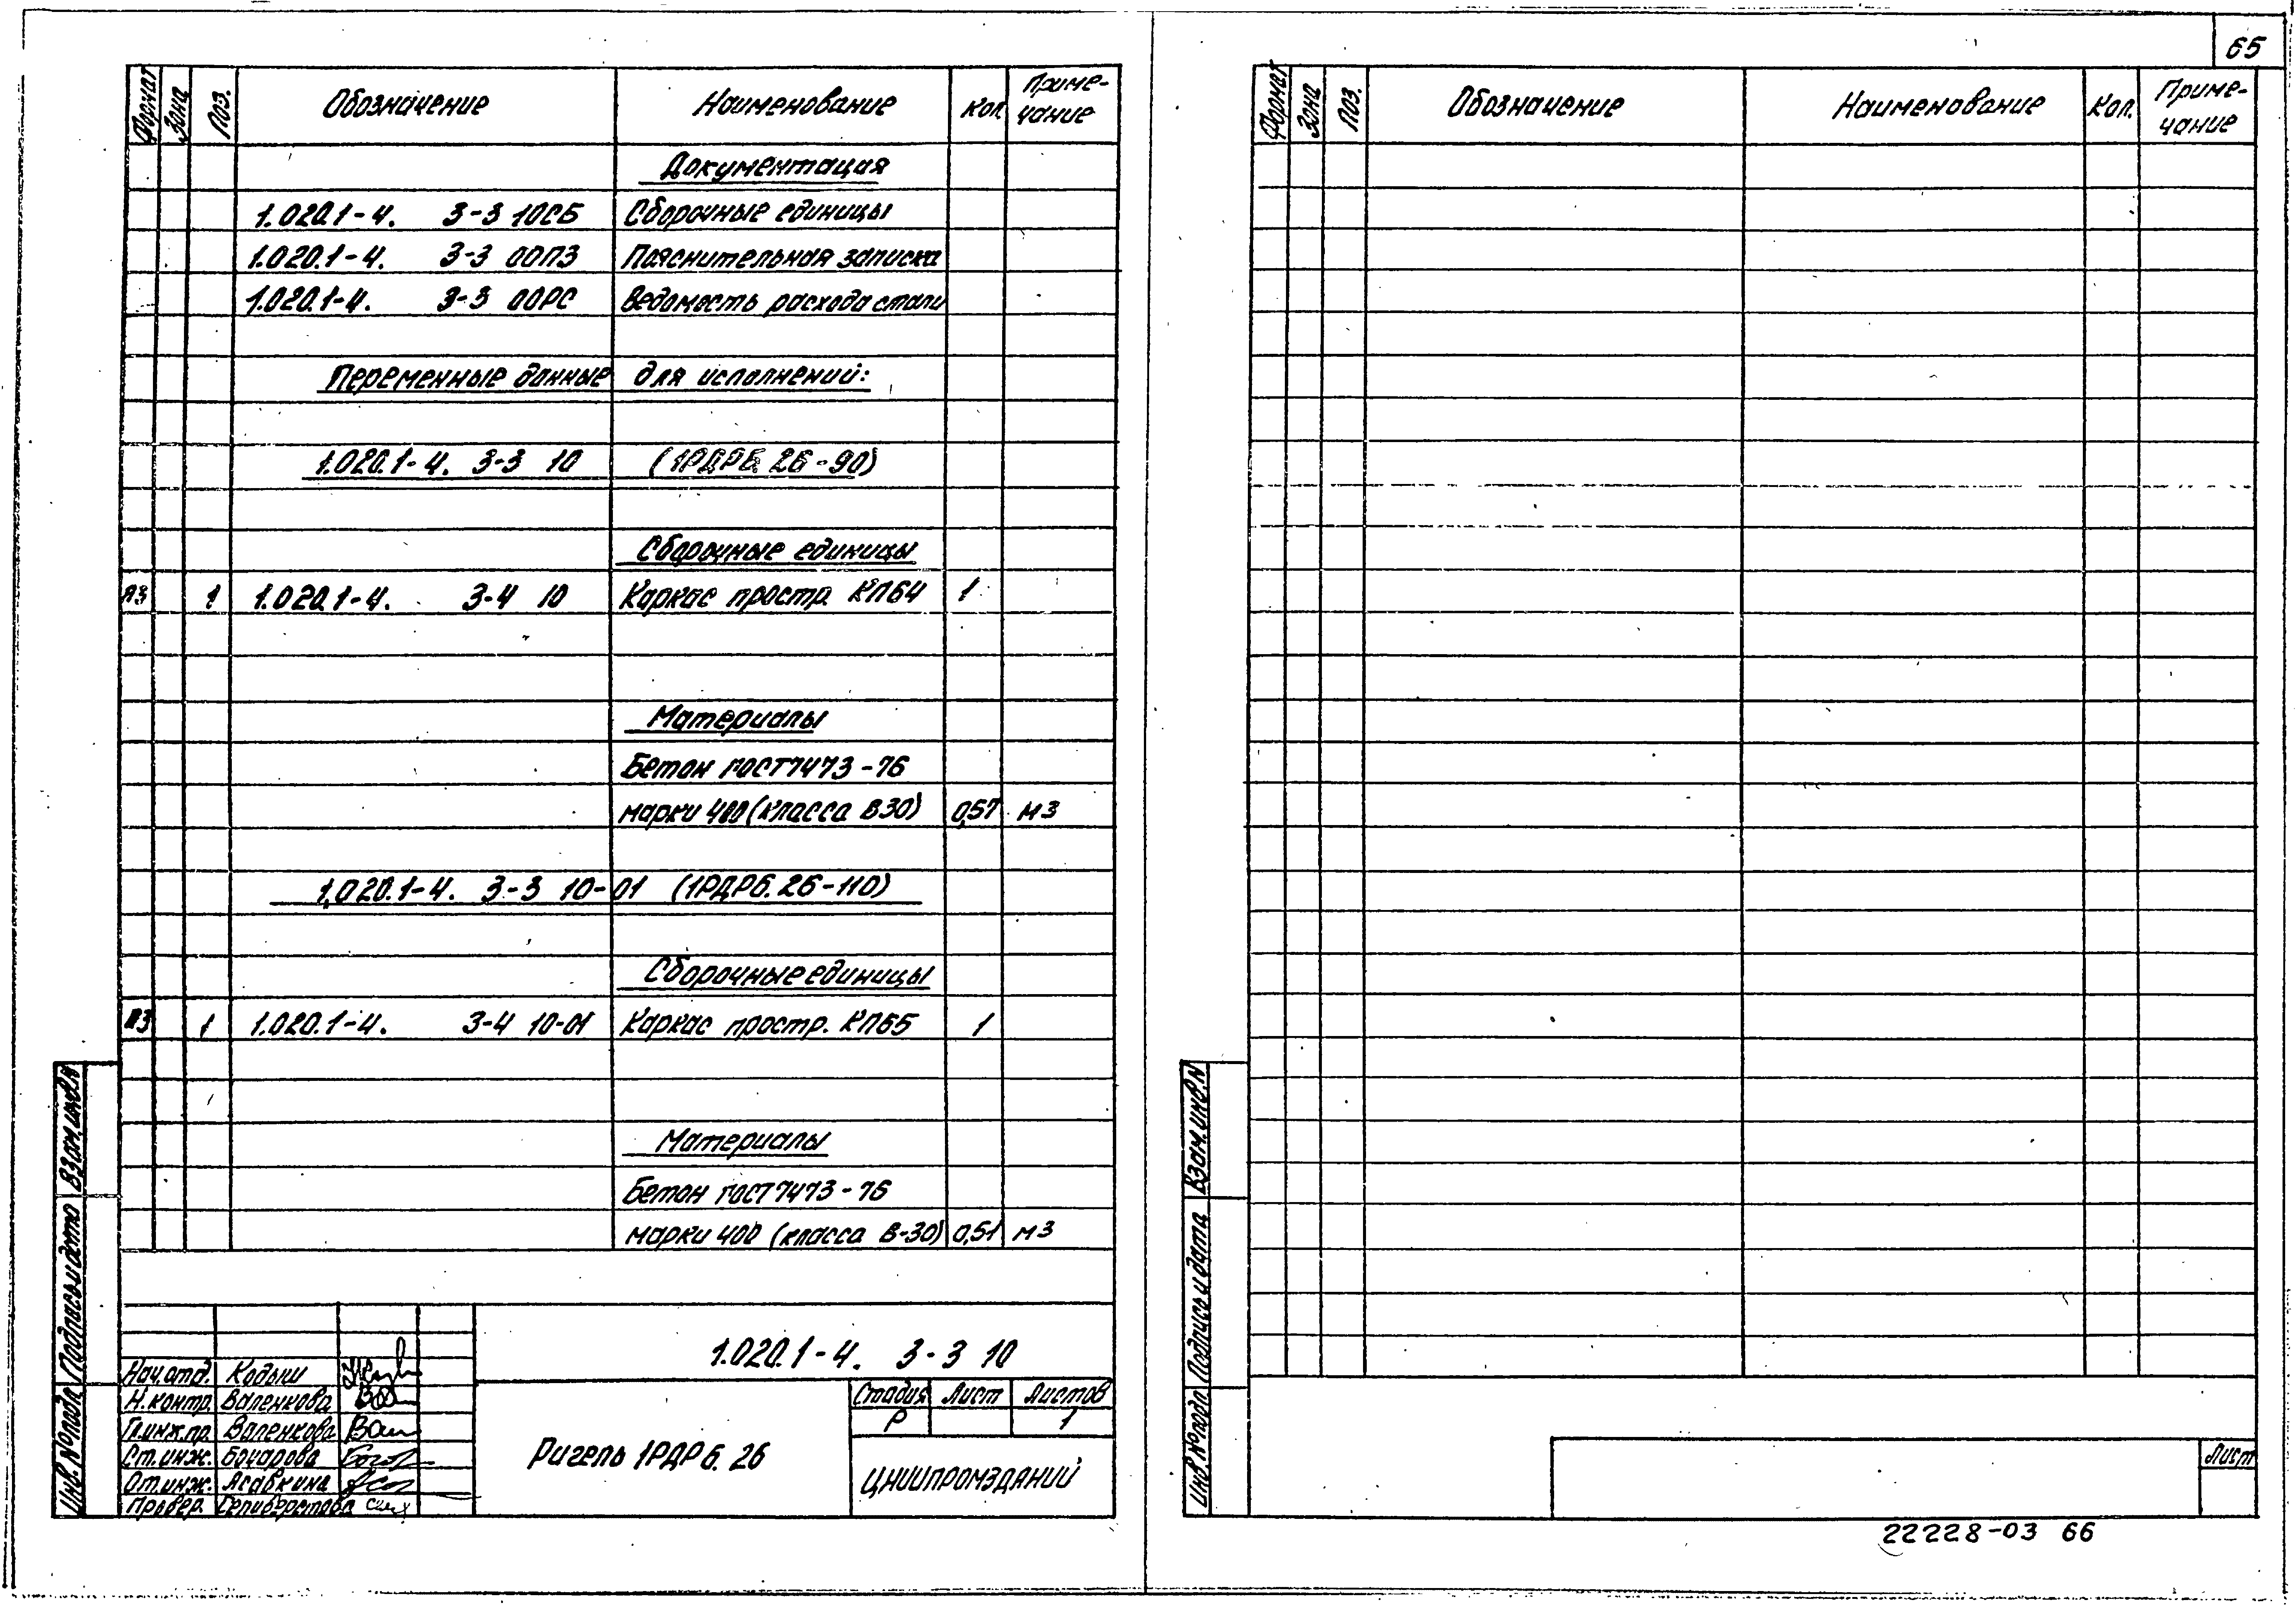 65
Формат Зона Поз. Обозначение Наименование Кол. Приме-чание
Документация
1.020.1-4. 3-3 10СБ Сборочные единицы
1.020.1-4. 3-3 00ПЗ Пояснительная записка
1.020.1-4. 3-3 00РС Ведомость расхода стали
Переменные данные для исполнений:
1.020.1-4. 3-3 10 (1РДР6.26-90)
Сборочные единицы
А3 1 1.020.1-4. 3-4 10 Каркас простр. КП64 1
Материалы
Бетон ГОСТ 7473-76
марки 400 (класса В30) 0,57 м3
1.020.1-4. 3-3 10-01 (1РДР6.26-110)
Сборочные единицы
А3 1 1.020.1-4. 3-4 10-01 Каркас простр. КП65 1
Материалы
Бетон ГОСТ 7473-76
марки 400 (класса В-30) 0,51 м3
Инв. № подл. Подпись и дата Взам. инв. N
1.020.1-4. 3-3 10
Нач. отд. Кодыш
Н. контр. Валенкова
Гл. инж. пр. Валенкова
Ст. инж. Бочарова
Ст. инж. Асавкина
Провер. Селиверстова
Ригель 1РДР6.26
Стадия Лист Листов
Р 1
ЦНИИПРОМЗДАНИЙ
Формат Зона Поз. Обозначение Наименование Кол. Приме-чание
Инв. № подл. Подпись и дата Взам. инв. N
Лист
22228-03 66